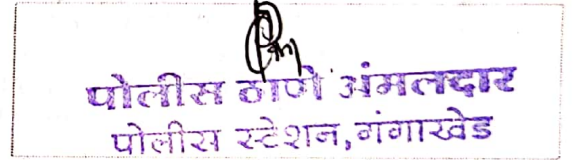 पोलीस ठाणे अंमलदार
पोलीस स्टेशन,गंगाखेड